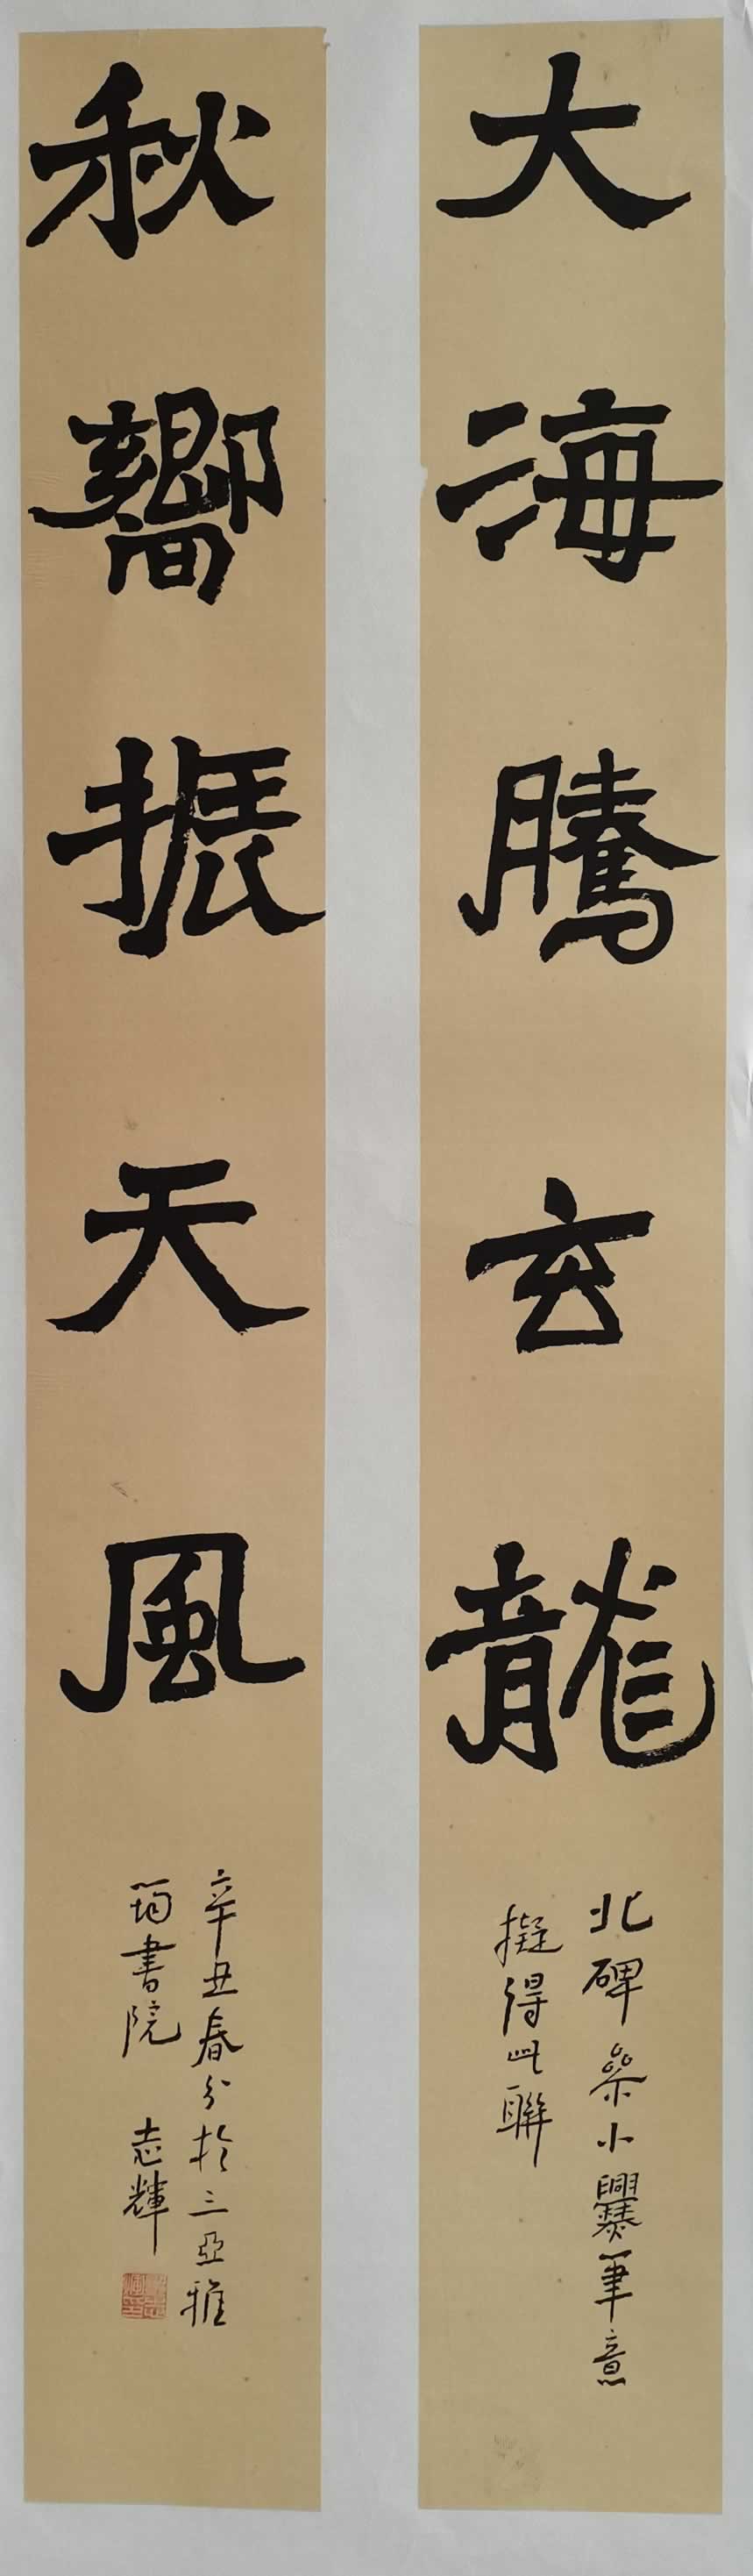 大海騰玄龍
北碑參小爨筆意
擬得此聯
秋嚮振天風
辛丑春分於三亞雅
筠書院 志輝